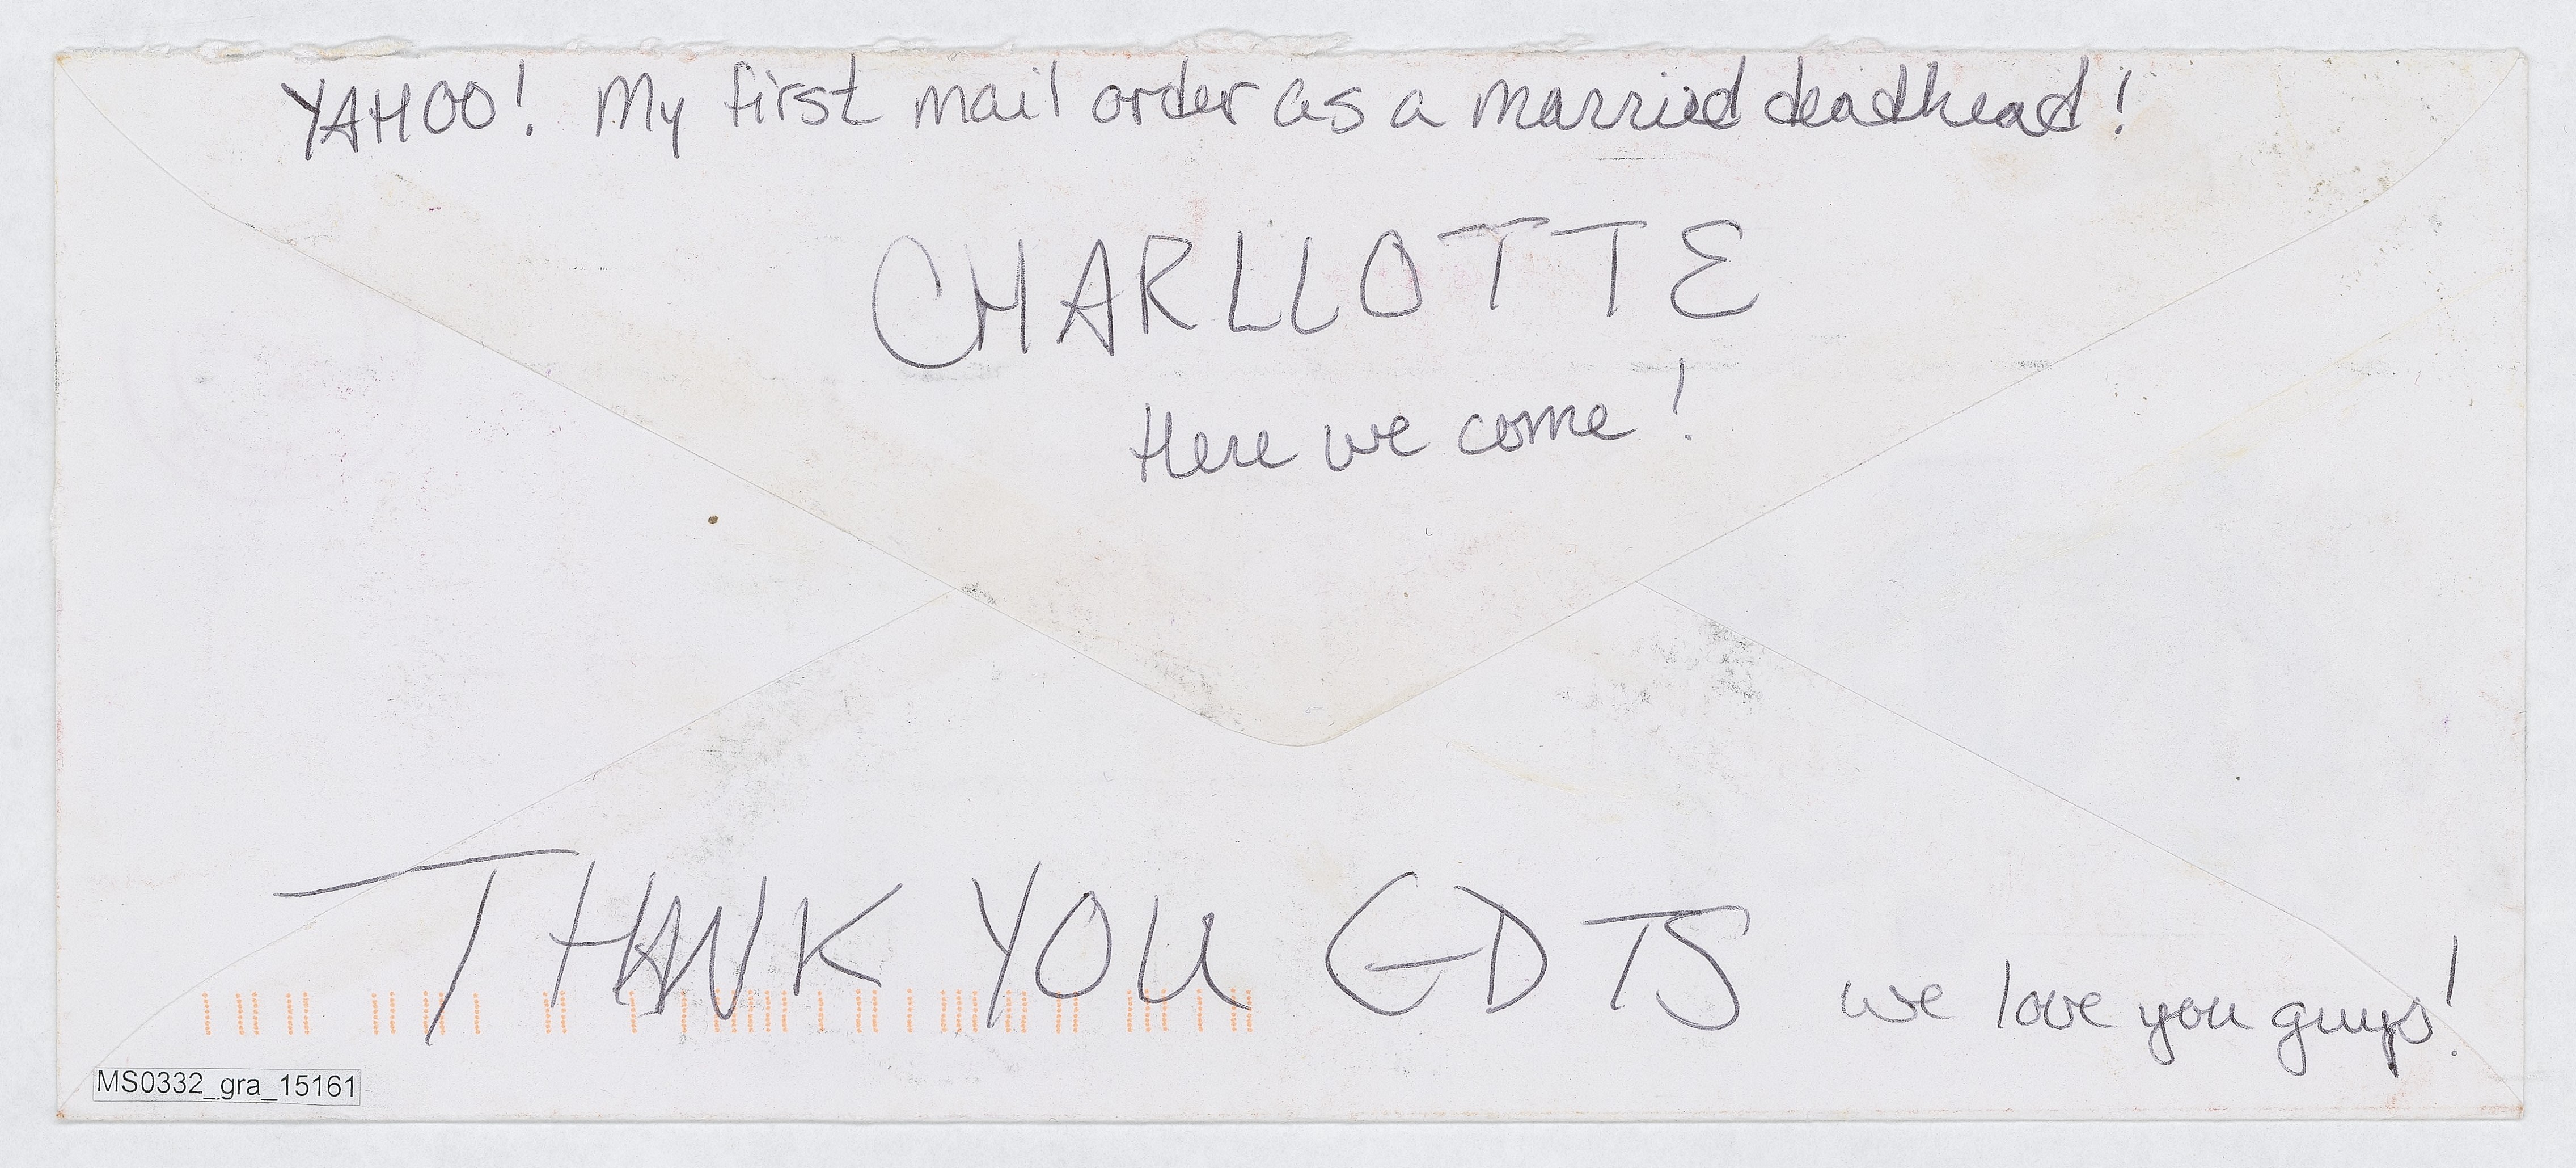 YAHOO! My first mail order as a married deadhead!
CHARLLOTTE
Here we come!
THANK YOU GDTS we love you guys!
MS0332_gra_15161